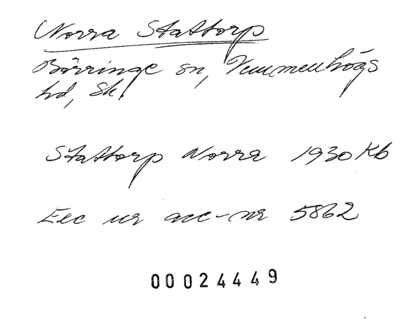 Norra Stattorp
Börringe sn, Vemmenhögs
hd, Sk.
Stattorp Norra 1930 Kb
Exc ur acc-nr 5862
00024449